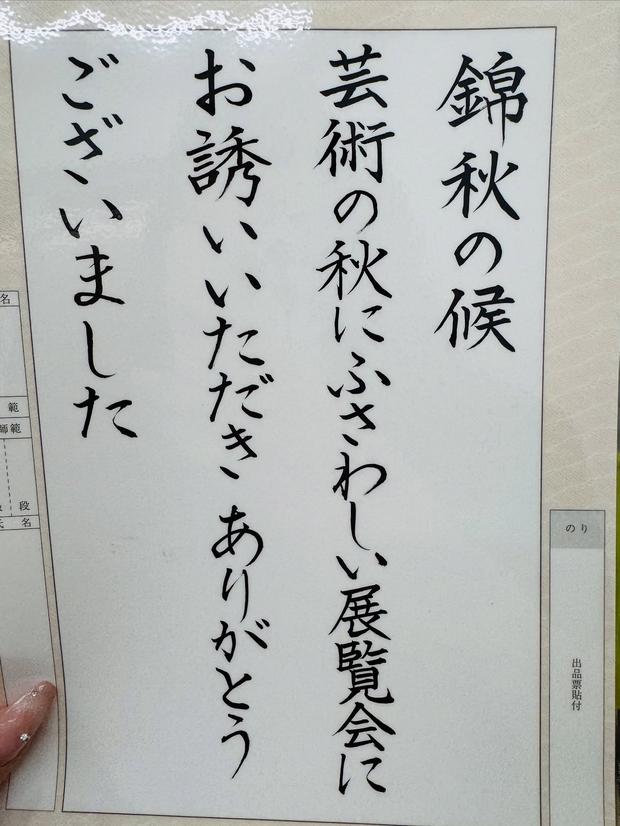 錦秋の候
芸術の秋にふさわしい展覧会に
お誘いいただきありがとう
ございました
のり
出品票貼付
名
範
師範
段
名